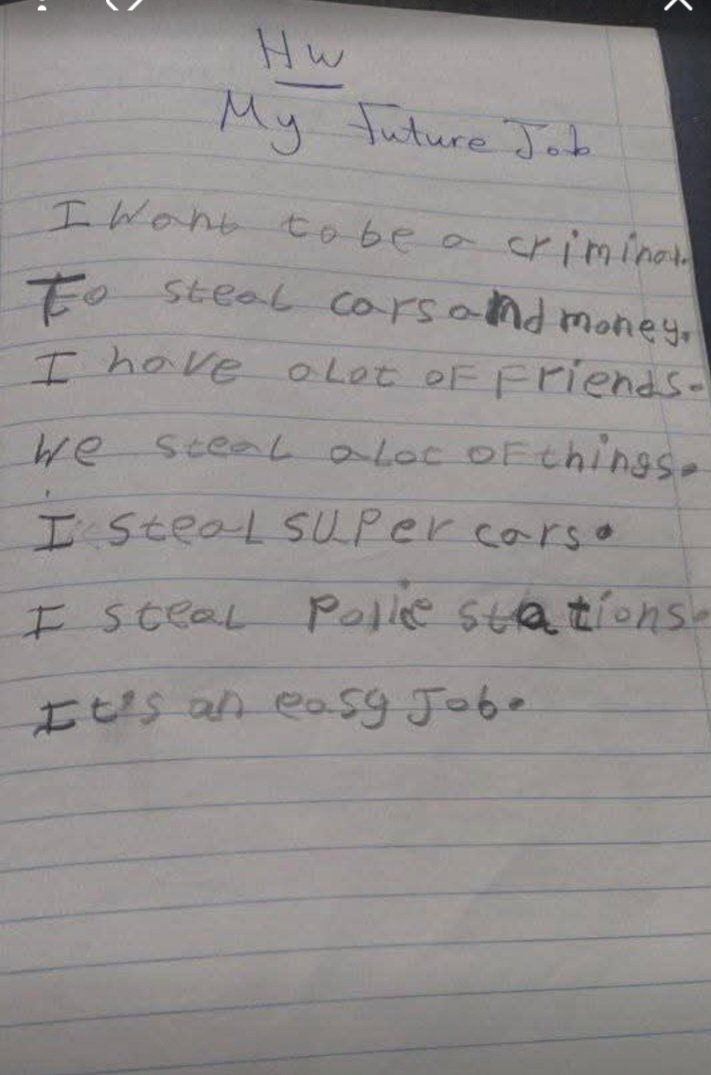 HW
My Future Job
I Want to be a criminal.
To steal cars and money.
I have a lot of Friends.
We steal a lot of things.
I steal super cars.
I steal Police stations.
It's an easy Job.